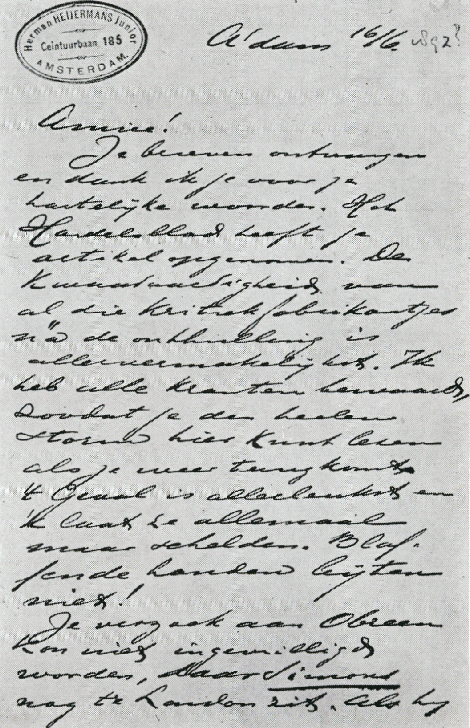 Herman HEIJERMANS Junior
Ceintuurbaan 185
AMSTERDAM
A'dam 16/6 1892?
Amice!
Je brieven ontvangen
en dank ik je voor je
hartelijke woorden. Het
Handelsblad heeft je
artikel opgenomen. De
kwaadaardigheid van
al die kritiekfabrikantjes
ná de onthulling is
allervermakelijkst. Ik
heb alle kranten bewaard,
zoodat je den heelen
storm hier kunt lezen
als je weer terug komt.
't Geval is allerleukst en
'k laat ze allemaal
maar schelden. Blaf-
fende honden bijten
niet!
Je verzoek aan Obreen
kon niet ingewilligd
worden, daar Simons
nog te Londen zit. Als hij